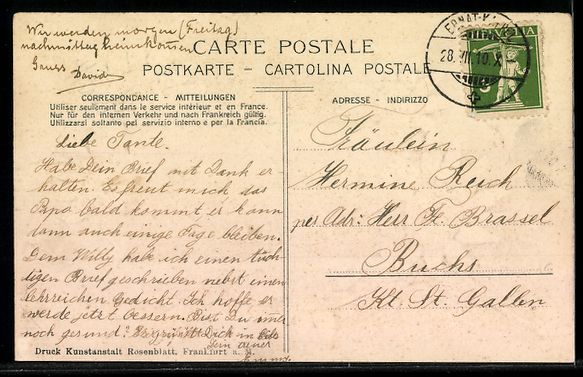 Wir werden morgen (Freitag)
nachmittag heimkommen
Gruss David
CARTE POSTALE
POSTKARTE - CARTOLINA POSTALE
CORRESPONDANCE - MITTEILUNGEN
Utiliser seulement dans le service intérieur et en France.
Nur für den internen Verkehr und nach Frankreich gültig.
Utilizzarsi soltanto pel servizio interno e per la Francia.
ADRESSE - INDIRIZZO
HELVETIA
28. VII. 10. X
Liebe Tante.
Habe Dein Brief mit Dank er-
halten. Es freut mich das
Papa bald kommt er kann
dann auch einige Tage bleiben.
Dem Willy habe ich einen tüch-
tigen Brief geschrieben nebst einem
lehrreichen Gedicht. Ich hoffe er
werde jetzt bessern. Bist Du immer
noch gesund? Es grüsst Dich in
Dein
Fräulein
Hermine Reich
per Adr: Herr Fr. Brassel
Buchs
Kt. St. Gallen
Druck Kunstanstalt Rosenblatt, Frankfurt a. M.